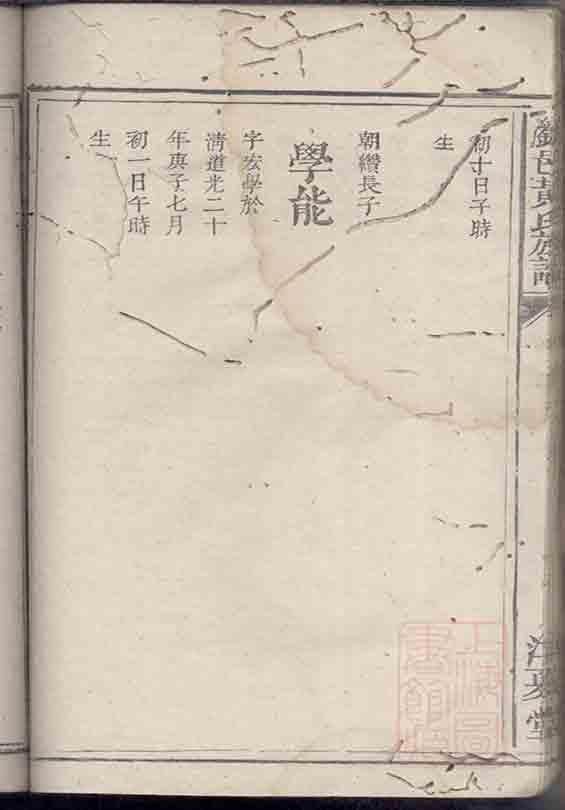 初十日子時
生
朝纘長子
學能
字宏學於
清道光二十
年庚子七月
初一日午時
生
邑黃氏族譜
江夏堂
上海圖書館藏